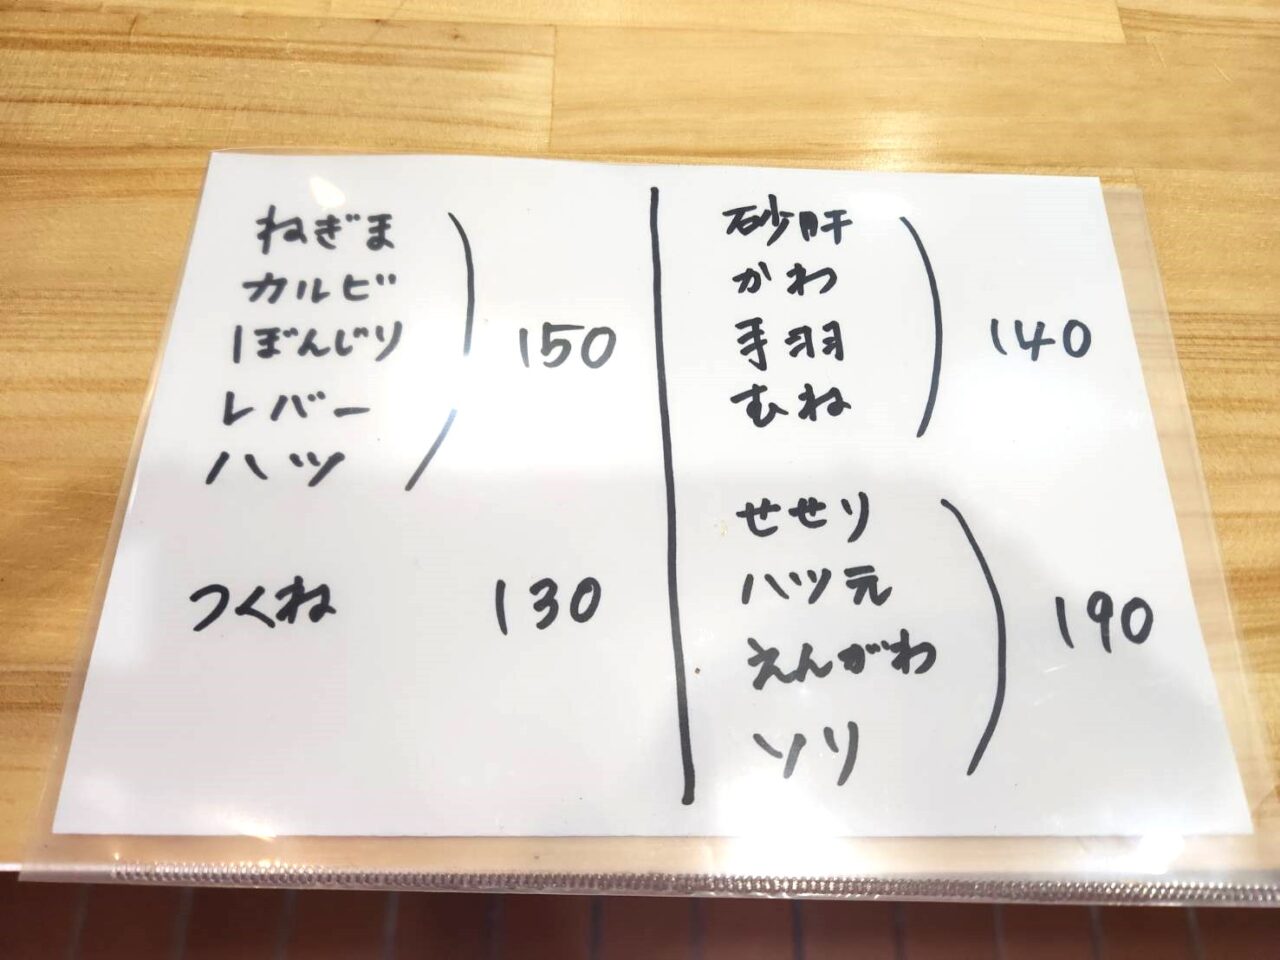 ねぎま
カルビ
ぼんじり
レバー
ハツ
150
つくね 130
砂肝
かわ
手羽
むね
140
せせり
ハツ元
えんがわ
ソリ
190